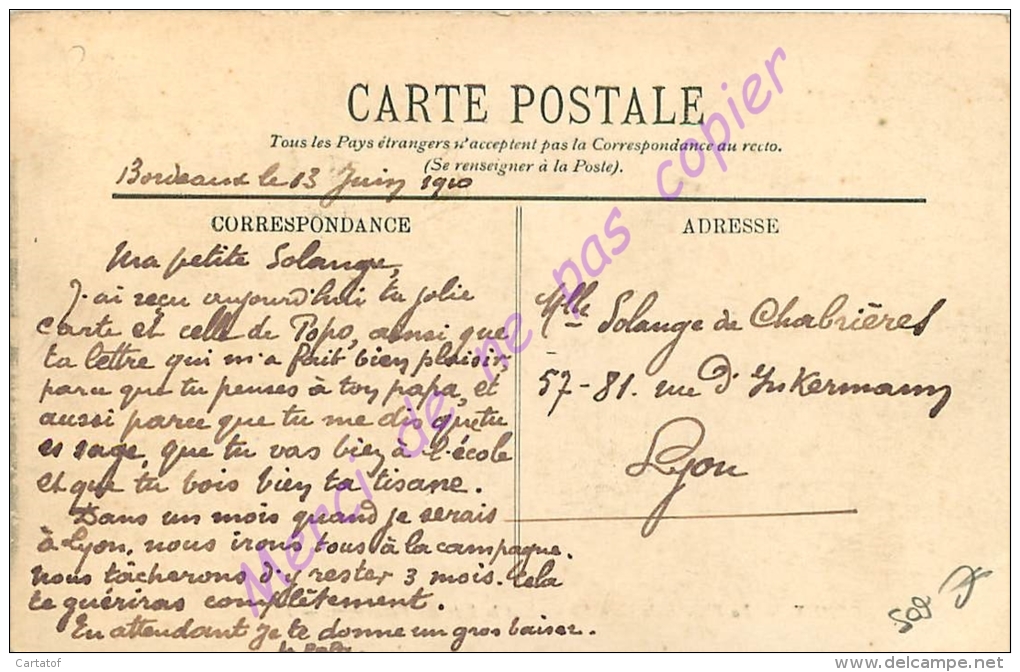 CARTE POSTALE
Tous les Pays étrangers n'acceptent pas la Correspondance au recto.
(Se renseigner à la Poste).
Bordeaux le 13 Juin 1910
CORRESPONDANCE
Ma petite Solange,
J'ai reçu aujourd'hui ta jolie
carte et celle de Popo, ainsi que
ta lettre qui m'a fait bien plaisir,
parce que tu penses à ton papa, et
aussi parce que tu me dis que tu
es sage, que tu vas bien à l'école
et que tu bois bien ta tisane.
Dans un mois quand je serais
à Lyon, nous irons tous à la campagne.
nous tâcherons d'y rester 3 mois. Cela
te guériras complètement.
En attendant je te donne un gros baiser.
ADRESSE
Mlle Solange de Chabrières
57-81. rue d'Inkermann
Lyon
508
Merci de ne pas copier
Cartatof
www.delcampe.net